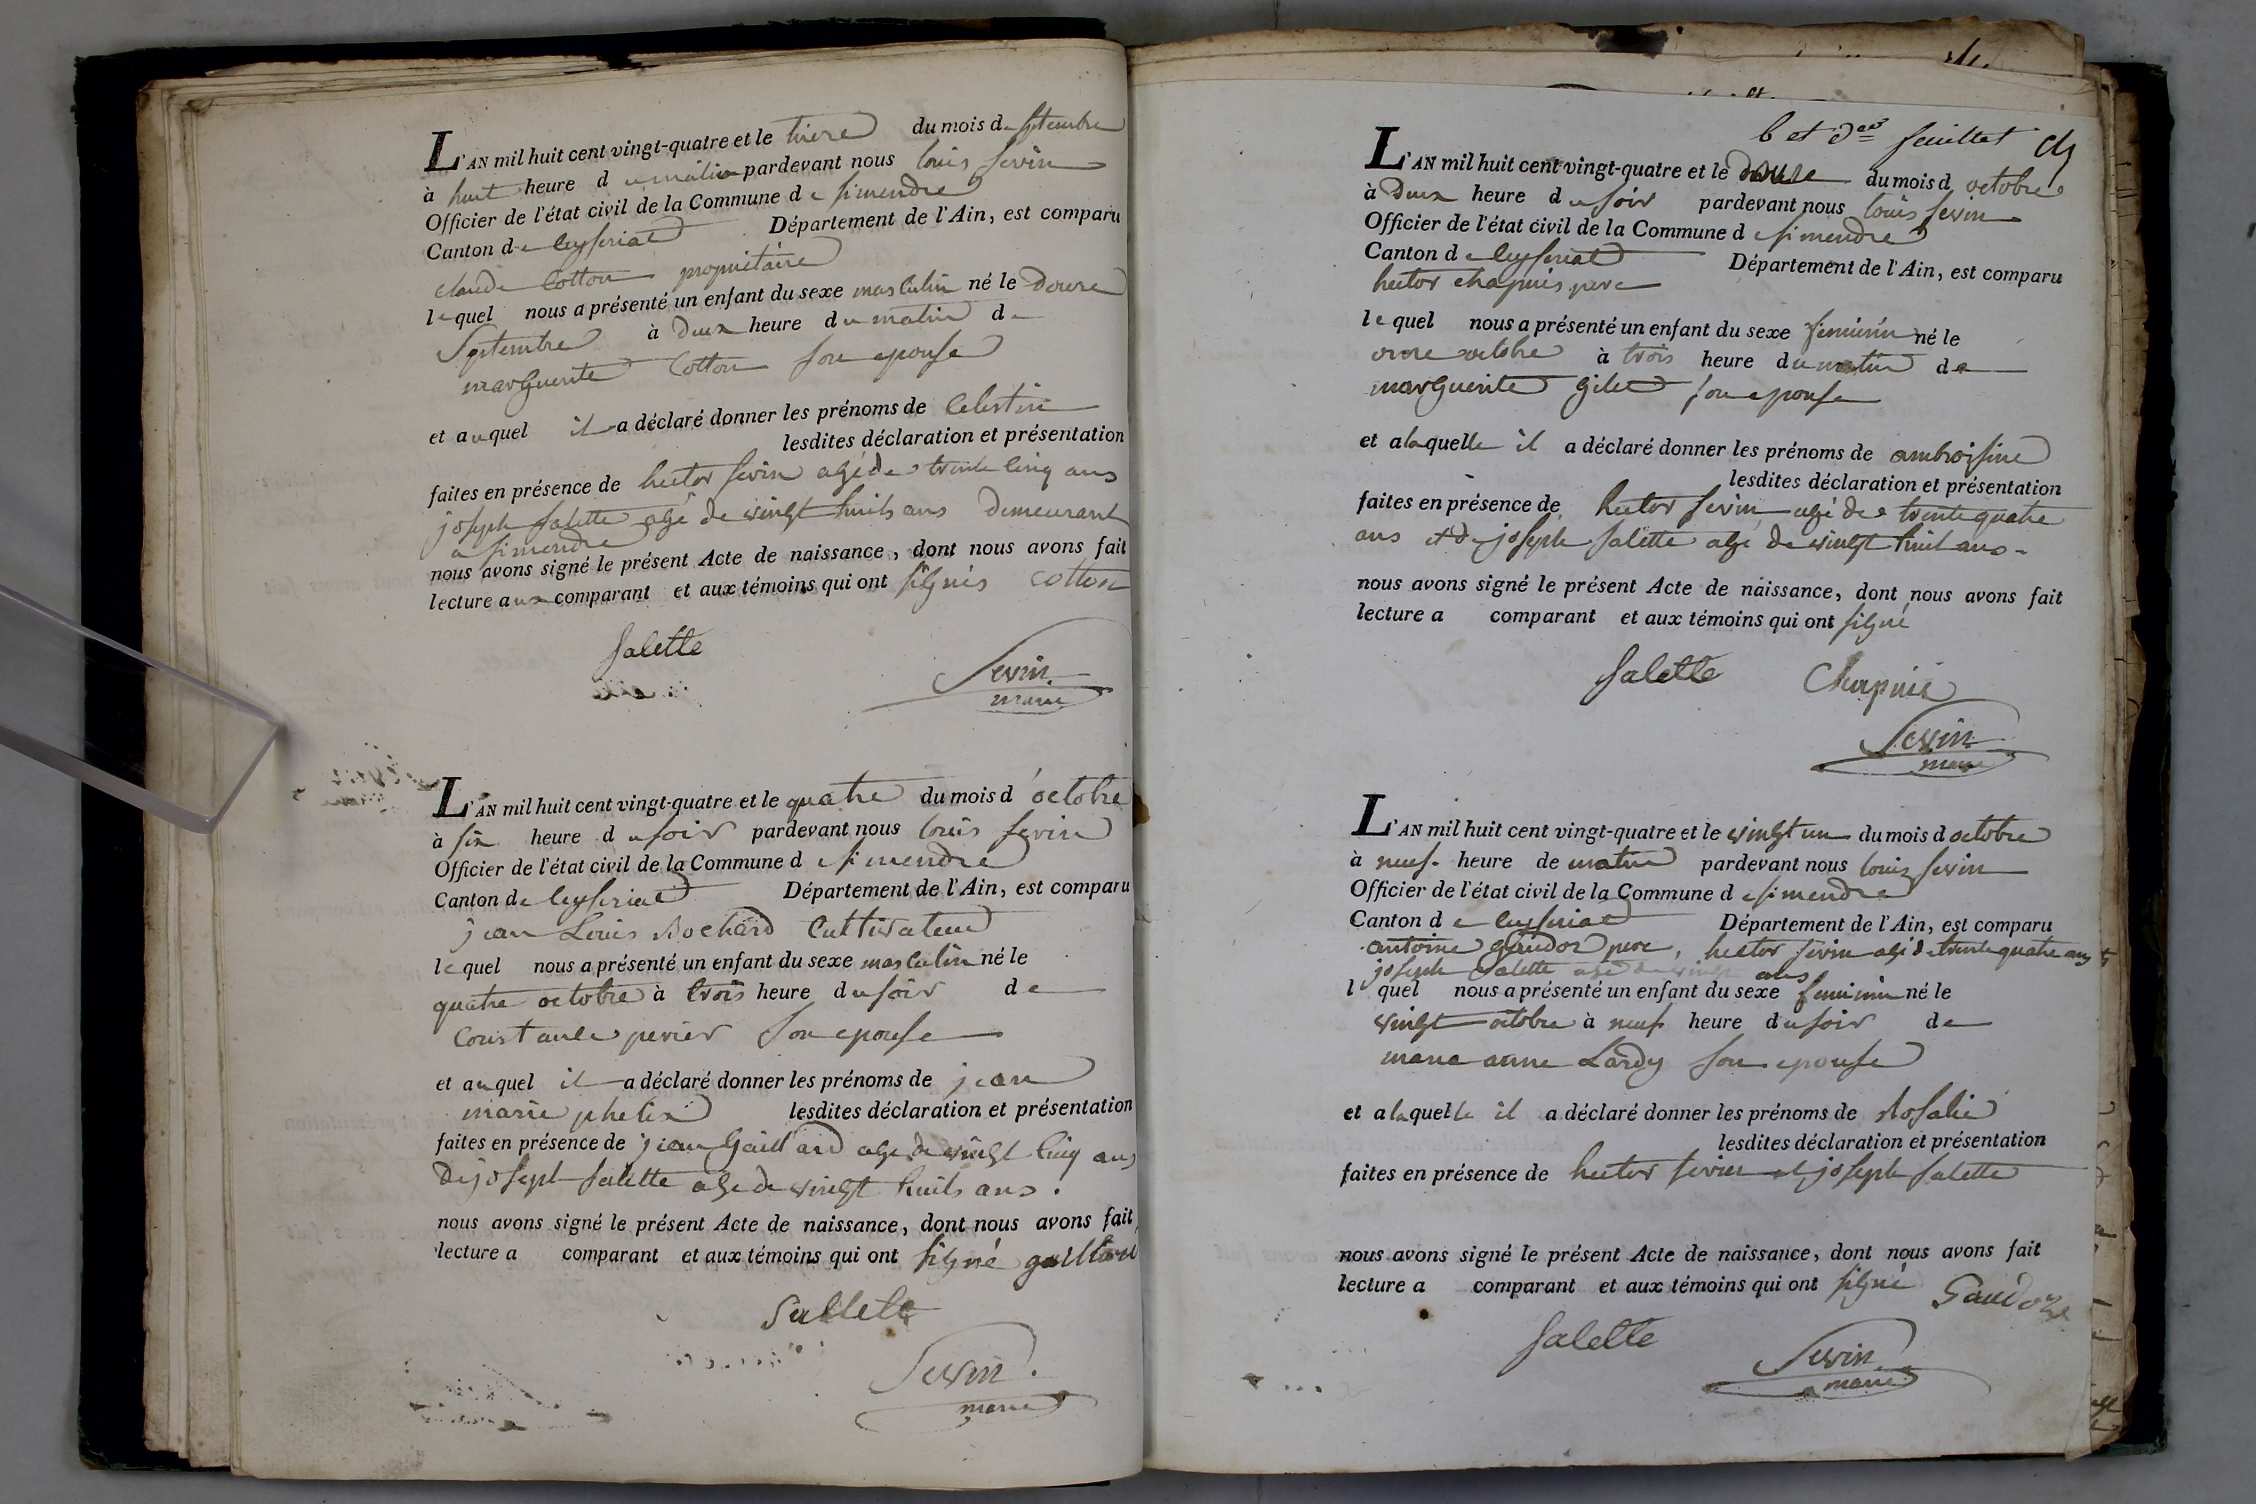 L'AN mil huit cent vingt-quatre et le treize du mois de septembre
à huit heure du matin pardevant nous louis sevin
Officier de l'état civil de la Commune de simendre
Canton de Ceyseriat Département de l'Ain, est comparu
claude Cotton propriétaire
lequel nous a présenté un enfant du sexe masculin né le douze
Septembre à deux heure du matin de
marguerite Cotton son epouse
et auquel il a déclaré donner les prénoms de Celestin
lesdites déclaration et présentation
faites en présence de hector sevin agé de trente cinq ans
joseph salette agé de vingt huits ans demeurant
a simendre
nous avons signé le présent Acte de naissance, dont nous avons fait
lecture aux comparant et aux témoins qui ont signés cotton
salette
Sevin
maire
L'AN mil huit cent vingt-quatre et le quatre du mois d'octobre
à six heure du soir pardevant nous louis sevin
Officier de l'état civil de la Commune de simendre
Canton de Ceyseriat Département de l'Ain, est comparu
jean Louis Rochard Cultivateur
lequel nous a présenté un enfant du sexe masculin né le
quatre octobre à trois heure du soir de
Constance perier son epouse
et auquel il a déclaré donner les prénoms de jean
marie phelix lesdites déclaration et présentation
faites en présence de jean Gaillard age de vingt cinq ans
de joseph salette age de vingt huits ans.
nous avons signé le présent Acte de naissance, dont nous avons fait
lecture a comparant et aux témoins qui ont signé gaillard
Sallete
Sevin
maire
6 et der feuillet
L'AN mil huit cent vingt-quatre et le douze du mois d octobre
à Deux heure du soir pardevant nous louis sevin
Officier de l'état civil de la Commune de simendre
Canton de Ceyseriat Département de l'Ain, est comparu
hector chapuis pere
lequel nous a présenté un enfant du sexe feminin né le
onze octobre à trois heure du matin de
marguerite gilet son epouse
et a laquelle il a déclaré donner les prénoms de ambroisine
lesdites déclaration et présentation
faites en présence de hector sevin agé de trente quatre
ans et de joseph salette agé de vingt huit ans
nous avons signé le présent Acte de naissance, dont nous avons fait
lecture a comparant et aux témoins qui ont signé
salette Chapuis
Sevin
maire
L'AN mil huit cent vingt-quatre et le vingt un du mois d octobre
à neuf heure de matin pardevant nous louis sevin
Officier de l'état civil de la Commune de simendre
Canton de Ceyseriat Département de l'Ain, est comparu
antoine gaudoz pere, hector sevin agé de trente quatre ans
joseph salette age de vingt ans
l quel nous a présenté un enfant du sexe feminin né le
vingt octobre à neuf heure du soir de
marie anne Lardy son epouse
et a laquelle il a déclaré donner les prénoms de Rosalie
lesdites déclaration et présentation
faites en présence de hector sevin et joseph salette
nous avons signé le présent Acte de naissance, dont nous avons fait
lecture a comparant et aux témoins qui ont signé Gaudoz
salette
Sevin
maire